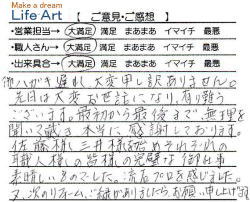 Make a dream
Life Art 【 ご意見・ご感想 】
・営業担当→ 大満足 満足 まあまあ イマイチ 最悪
・職人さん→ 大満足 満足 まあまあ イマイチ 最悪
・出来具合→ 大満足 満足 まあまあ イマイチ 最悪
ハガキ遅れ大変申し訳ありません。
先日は大変お世話になり、有難う
ございます。最初から最後まで無理を
聞いて戴き本当に感謝しております。
佐藤様、三井様を始めそれぞれの
職人様の皆様の完璧な御仕事
素晴しいものでした。流石プロを感じました。
又、次のリフォーム、ご縁がありましたらお願い申し上げます